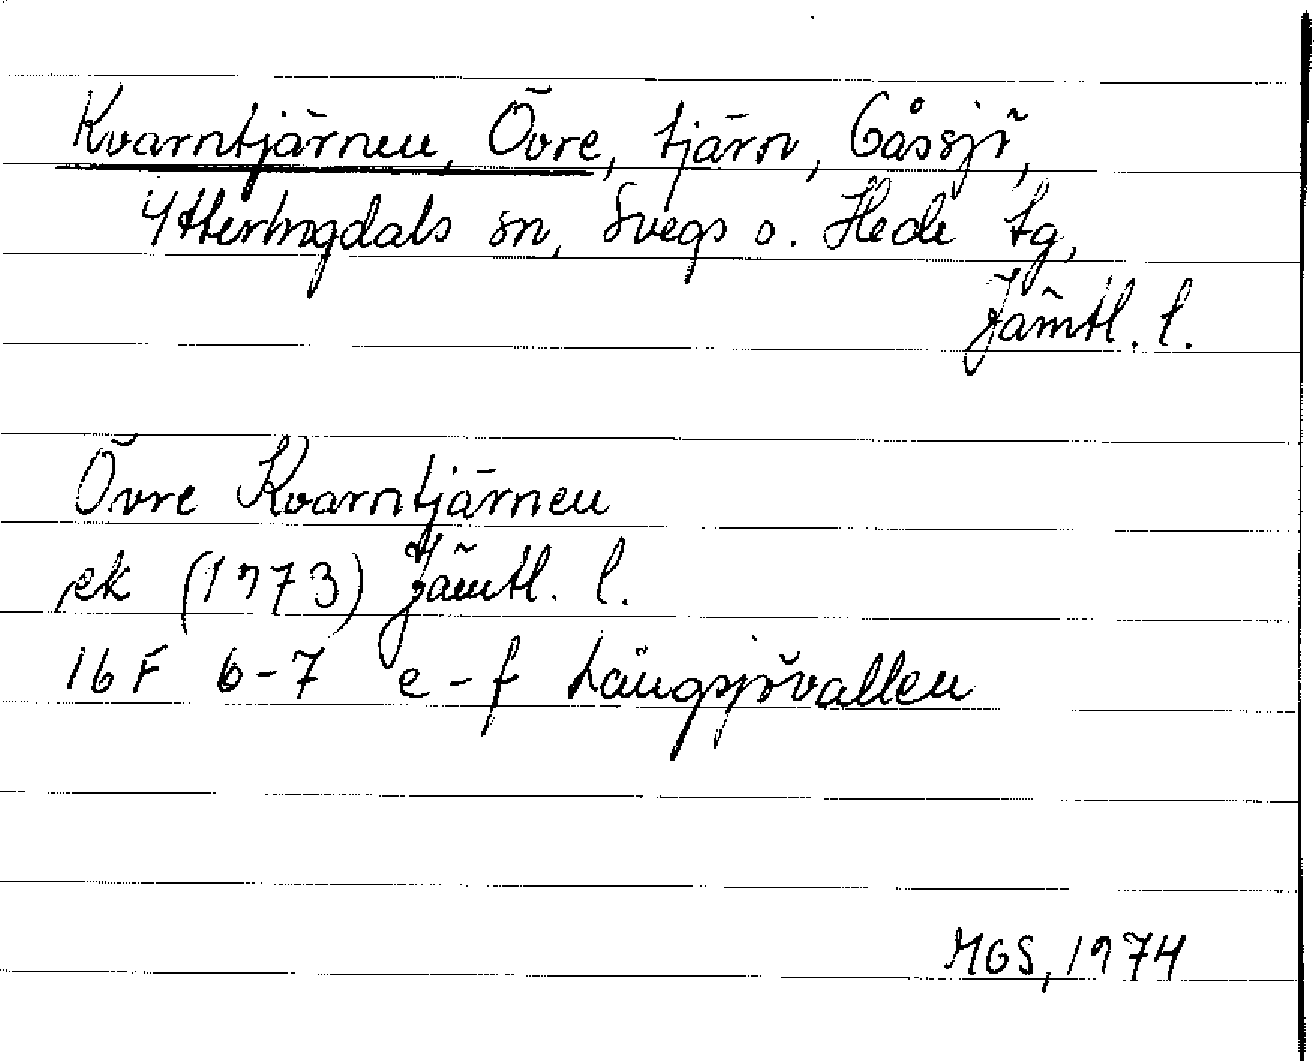 Kvarntjärnen, Övre, tjärn, Gåssjö,
Ytterhogdals sn, Svegs o. Hede tg,
Jämtl. l.
Övre Kvarntjärnen
ek (1973) Jämtl. l.
16 F 6-7 e-f Långsjövallen
MGS, 1974